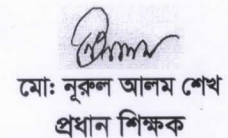 মোঃ নূরুল আলম শেখ
প্রধান শিক্ষক